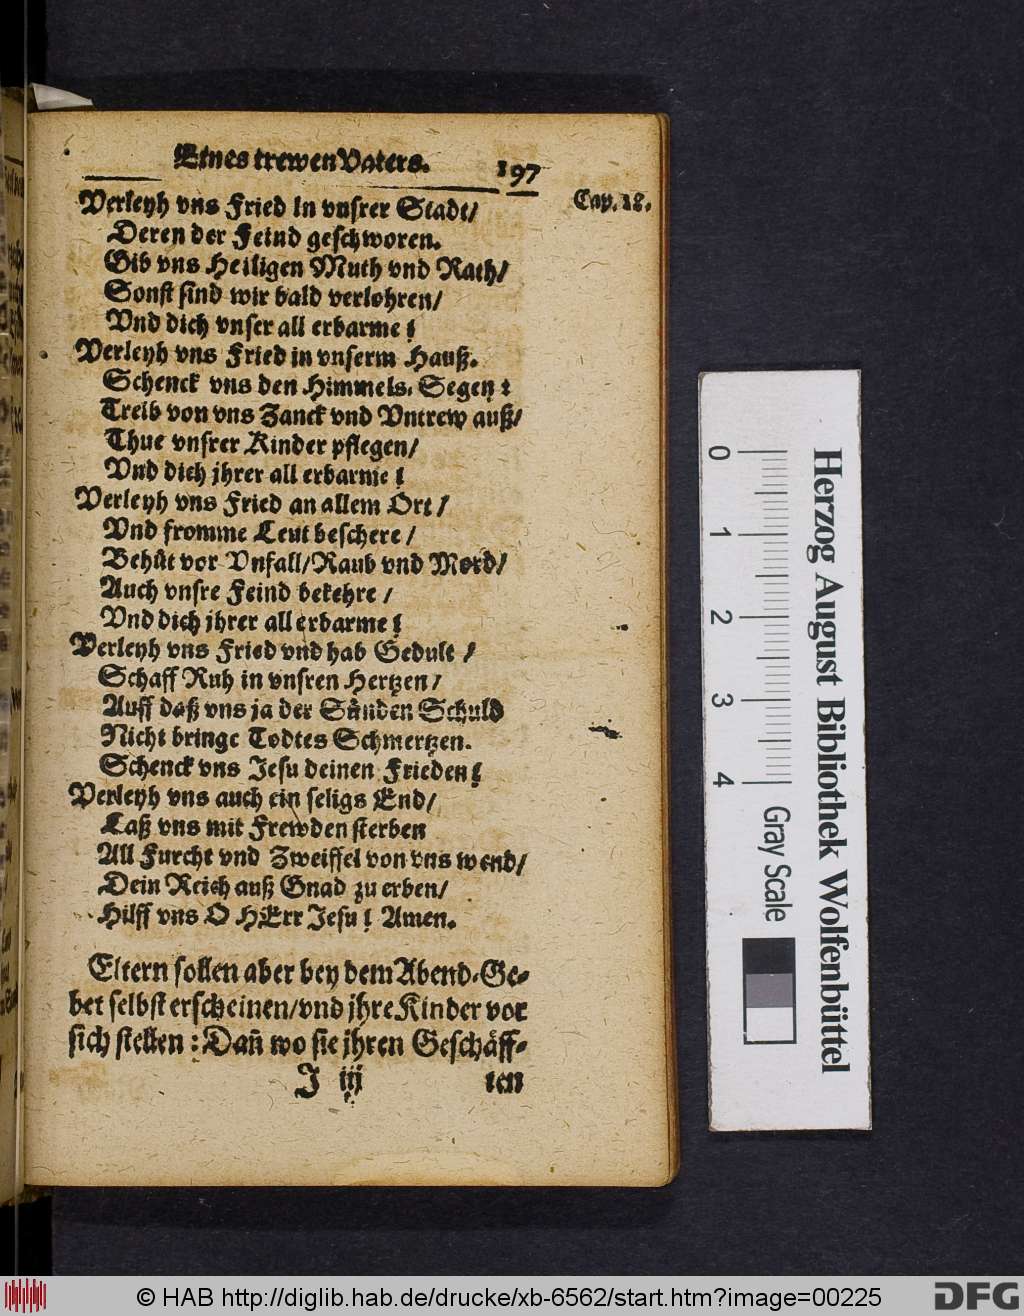 Eines trewen Vaters. 197
Cap. 18.
Verleyh vns Fried in vnsrer Stadt/
Deren der Feind geschworen.
Gib vns Heiligen Muth vnd Rath/
Sonst sind wir bald verlohren/
Vnd dich vnser all erbarme!
Verleyh vns Fried in vnserm Hauß.
Schenck vns den Himmels-Segen:
Treib von vns Zanck vnd Vntrew auß/
Thue vnsrer Kinder pflegen/
Vnd dich jhrer all erbarme!
Verleyh vns Fried an allem Ort/
Vnd fromme Leut beschere/
Behüt vor Vnfall/Raub vnd Mord/
Auch vnsre Feind bekehre/
Vnd dich jhrer all erbarme!
Verleyh vns Fried vnd hab Gedult/
Schaff Ruh in vnsren Hertzen/
Auff daß vns ja der Sünden Schuld
Nicht bringe Todtes Schmertzen.
Schenck vns Jesu deinen Frieden!
Verleyh vns auch ein seligs End/
Laß vns mit Frewden sterben
All Furcht vnd Zweiffel von vns wend/
Dein Reich auß Gnad zu erben/
Hilff vns O HErr Jesu! Amen.
Eltern sollen aber bey dem Abend-Ge-
bet selbst erscheinen/vnd jhre Kinder vor
sich stellen: Dañ wo sie jhren Geschäff-
J iij ten
Herzog August Bibliothek Wolfenbüttel
0 1 2 3 4 Gray Scale
© HAB http://diglib.hab.de/drucke/xb-6562/start.htm?image=00225
DFG